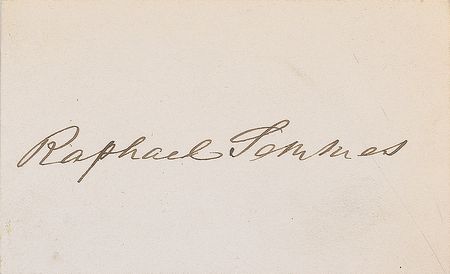 Raphael Semmes